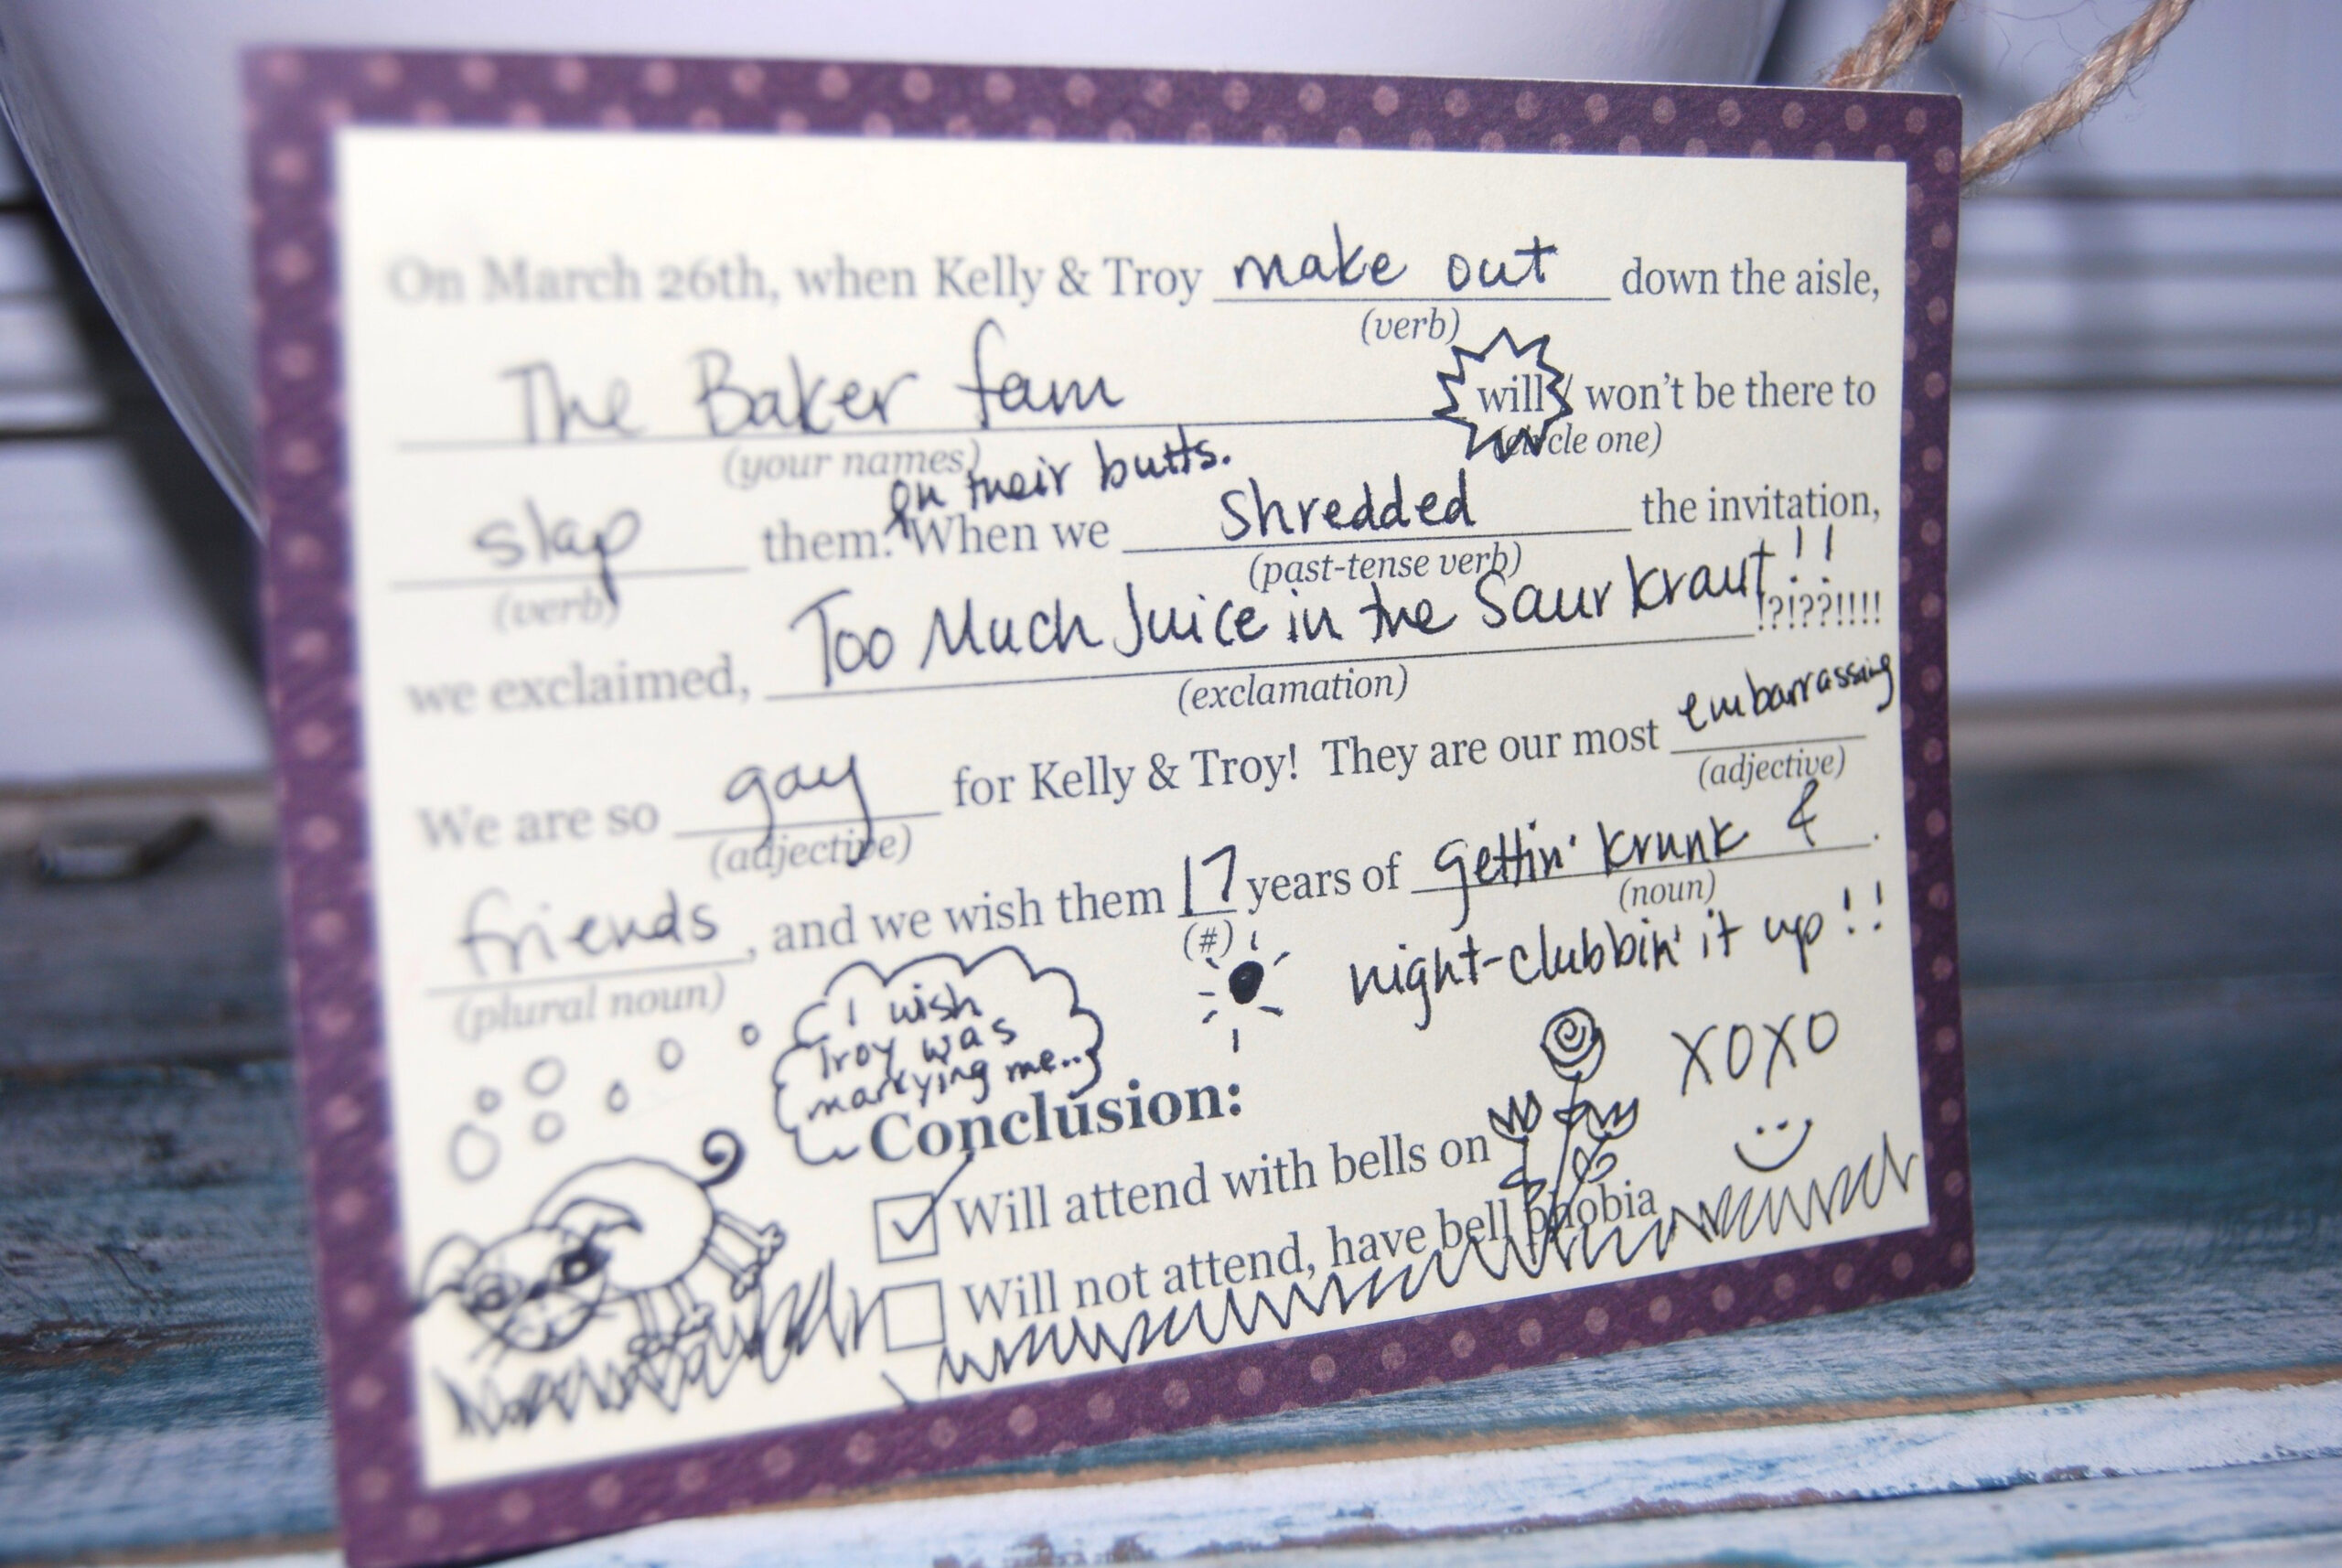 On March 26th, when Kelly & Troy make out down the aisle,
(verb)
The Baker fam will / won't be there to
(your names) (circle one)
on their butts.
slap them. When we shredded the invitation,
(verb) (past-tense verb)
we exclaimed, Too Much Juice in the Saurkraut!! !?!??!!!!
(exclamation)
We are so gay for Kelly & Troy! They are our most embarrassing
(adjective) (adjective)
friends, and we wish them 17 years of gettin' krunk & .
(plural noun) (#) (noun)
night-clubbin' it up!!
I wish
Troy was
marrying me...
xoxo
Conclusion:
Will attend with bells on
Will not attend, have bell phobia